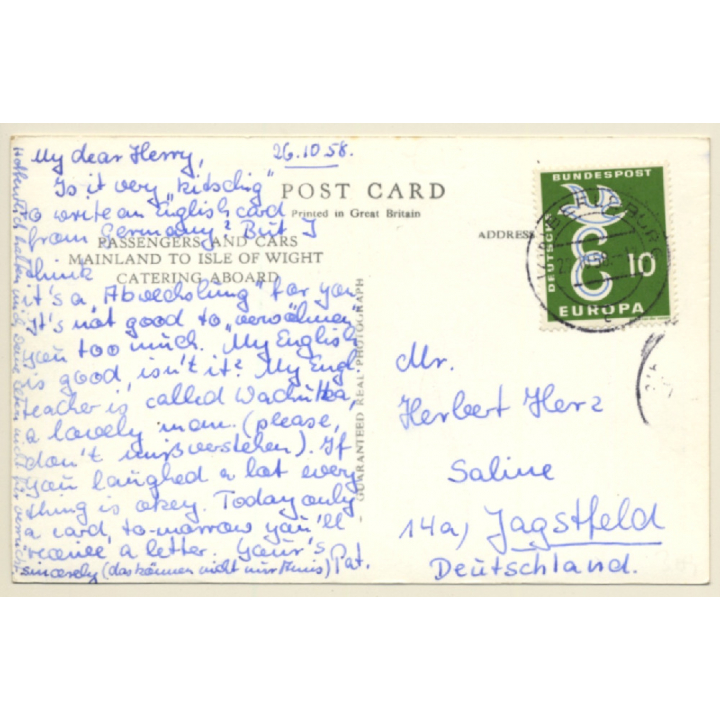 My dear Herry, 26.10.58.
Is it very "kitschig"
to write an English card
from Germany? But I
think
it's a "Abwechslung" for you
It's not good to "verwöhnen"
you too much. My English
is good, isn't it? My Engl.
teacher is called
a lovely man. (please,
don't mißverstehen). If
you laughed a lot every
thing is okey. Today only
a card, to-morrow you'll
receive a letter. Your's
sincerely (das können nicht nur Pat.
Hoffentlich halten mich Deine
POST CARD
Printed in Great Britain
PASSENGERS AND CARS
MAINLAND TO ISLE OF WIGHT
CATERING ABOARD
GUARANTEED REAL PHOTOGRAPH
ADDRESS
DEUTSCHE BUNDESPOST
10
EUROPA
Mr.
Herbert Herz
Saline
14a) Jagstfeld
Deutschland.